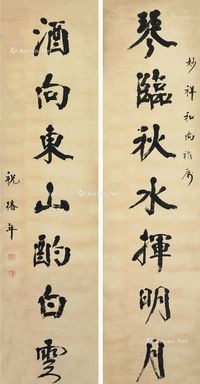 妙祥和尚雅属
琴臨秋水揮明月
酒向東山酌白雲
祝椿年